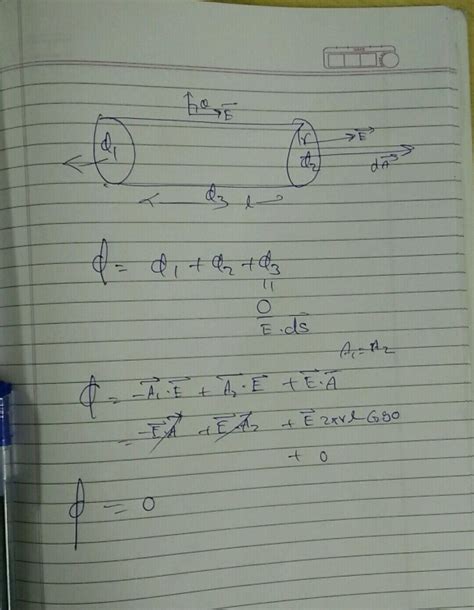 θ E⃗
ϕ₁ r E⃗
ϕ₂ dA⃗
ϕ₃ l
ϕ = ϕ₁ + ϕ₂ + ϕ₃
||
0
E · ds⃗
A₁ = A₂
ϕ = -A⃗₁ · E⃗ + A⃗₂ · E⃗ + E⃗ · A⃗
= -E⃗ · A⃗ + E⃗ · A⃗₂ + E⃗ 2πrl Cos90
+ 0
ϕ = 0